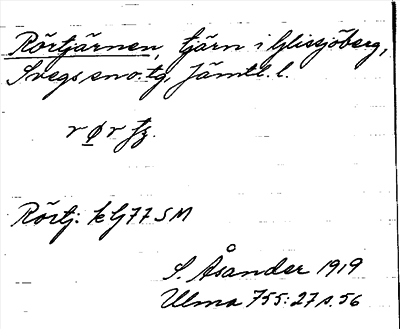 Rörtjärnen, tjärn i Glissjöberg,
Svegs sno. tg, Jämtl. l.
r ø r tz.
Rörtj: k bj 77 SM
S Åsander 1919
Ulma 755:27 s. 56